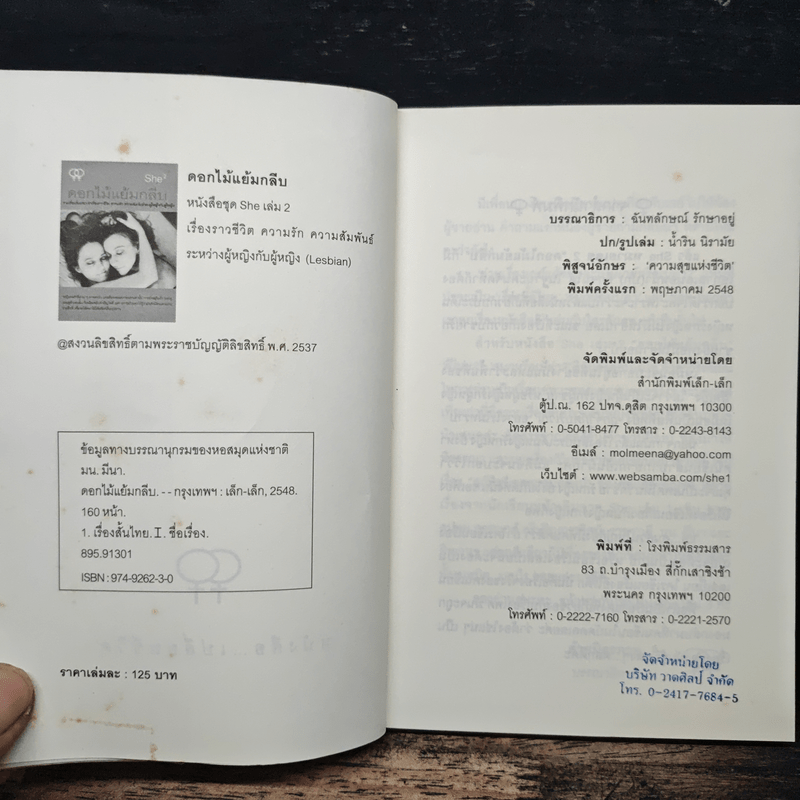 She²
ดอกไม้แย้มกลีบ
ดอกไม้แย้มกลีบ
หนังสือชุด She เล่ม 2
เรื่องราวชีวิต ความรัก ความสัมพันธ์
ระหว่างผู้หญิงกับผู้หญิง (Lesbian)
@สงวนลิขสิทธิ์ตามพระราชบัญญัติลิขสิทธิ์ พ.ศ. 2537
ข้อมูลทางบรรณานุกรมของหอสมุดแห่งชาติ
มน. มีนา.
ดอกไม้แย้มกลีบ. -- กรุงเทพฯ : เล็ก-เล็ก, 2548.
160 หน้า.
1. เรื่องสั้นไทย. I. ชื่อเรื่อง.
895.91301
ISBN : 974-9262-3-0
ราคาเล่มละ : 125 บาท
บรรณาธิการ : ฉันทลักษณ์ รักษาอยู่
ปก/รูปเล่ม : น้ำริน นิรามัย
พิสูจน์อักษร : 'ความสุขแห่งชีวิต'
พิมพ์ครั้งแรก : พฤษภาคม 2548
จัดพิมพ์และจัดจำหน่ายโดย
สำนักพิมพ์เล็ก-เล็ก
ตู้ป.ณ. 162 ปทจ.ดุสิต กรุงเทพฯ 10300
โทรศัพท์ : 0-5041-8477 โทรสาร : 0-2243-8143
อีเมล์ : molmeena@yahoo.com
เว็บไซต์ : www.websamba.com/she1
พิมพ์ที่ : โรงพิมพ์ธรรมสาร
83 ถ.บำรุงเมือง สี่กั๊กเสาชิงช้า
พระนคร กรุงเทพฯ 10200
โทรศัพท์ : 0-2222-7160 โทรสาร : 0-2221-2570
จัดจำหน่ายโดย
บริษัท วาดศิลป์ จำกัด
โทร. 0-2417-7684-5